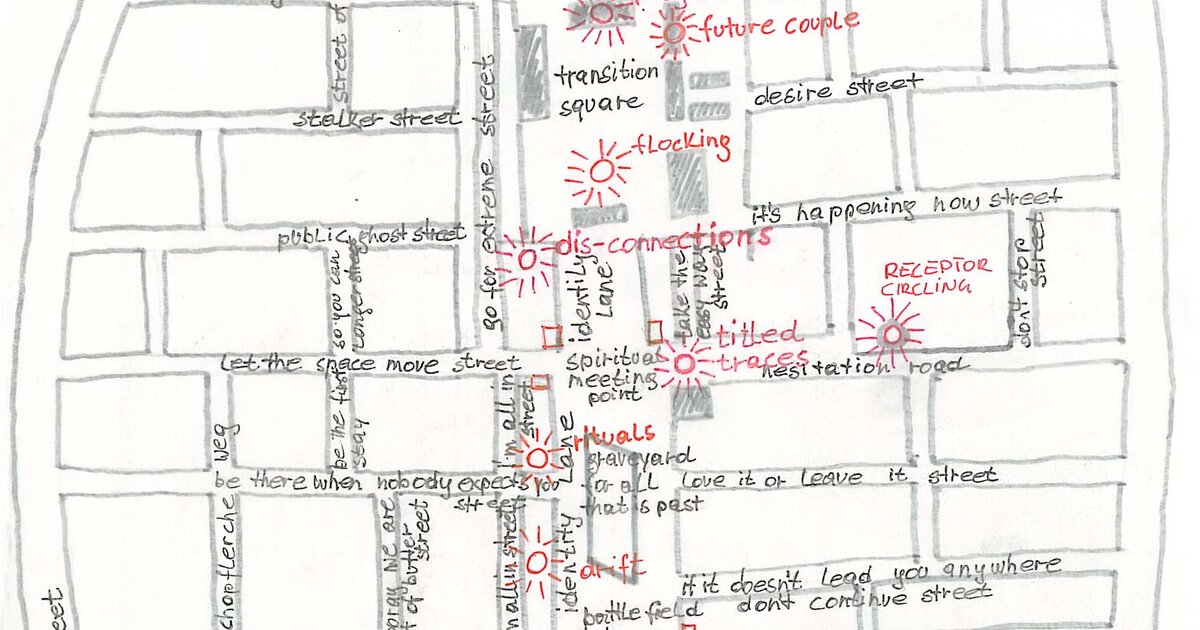 future couple
street of
transition
square
desire street
stalker street
go for extreme street
flocking
it's happening now street
public ghost street
dis-connections
so you can
longer street
identity
Lane
take the
easy way
street
RECEPTOR
CIRCLING
don't stop
street
titled
traces
Let the space move street
spiritual
meeting
point
hesitation road
be the first
stay
I'm all in
street
rituals
weg
graveyard
for all
that is past
be there when nobody expects you
street
Love it or leave it street
identity Lane
we are
of butter
street
all in street
drift
if it doesn't lead you anywhere
dont continue street
battle field